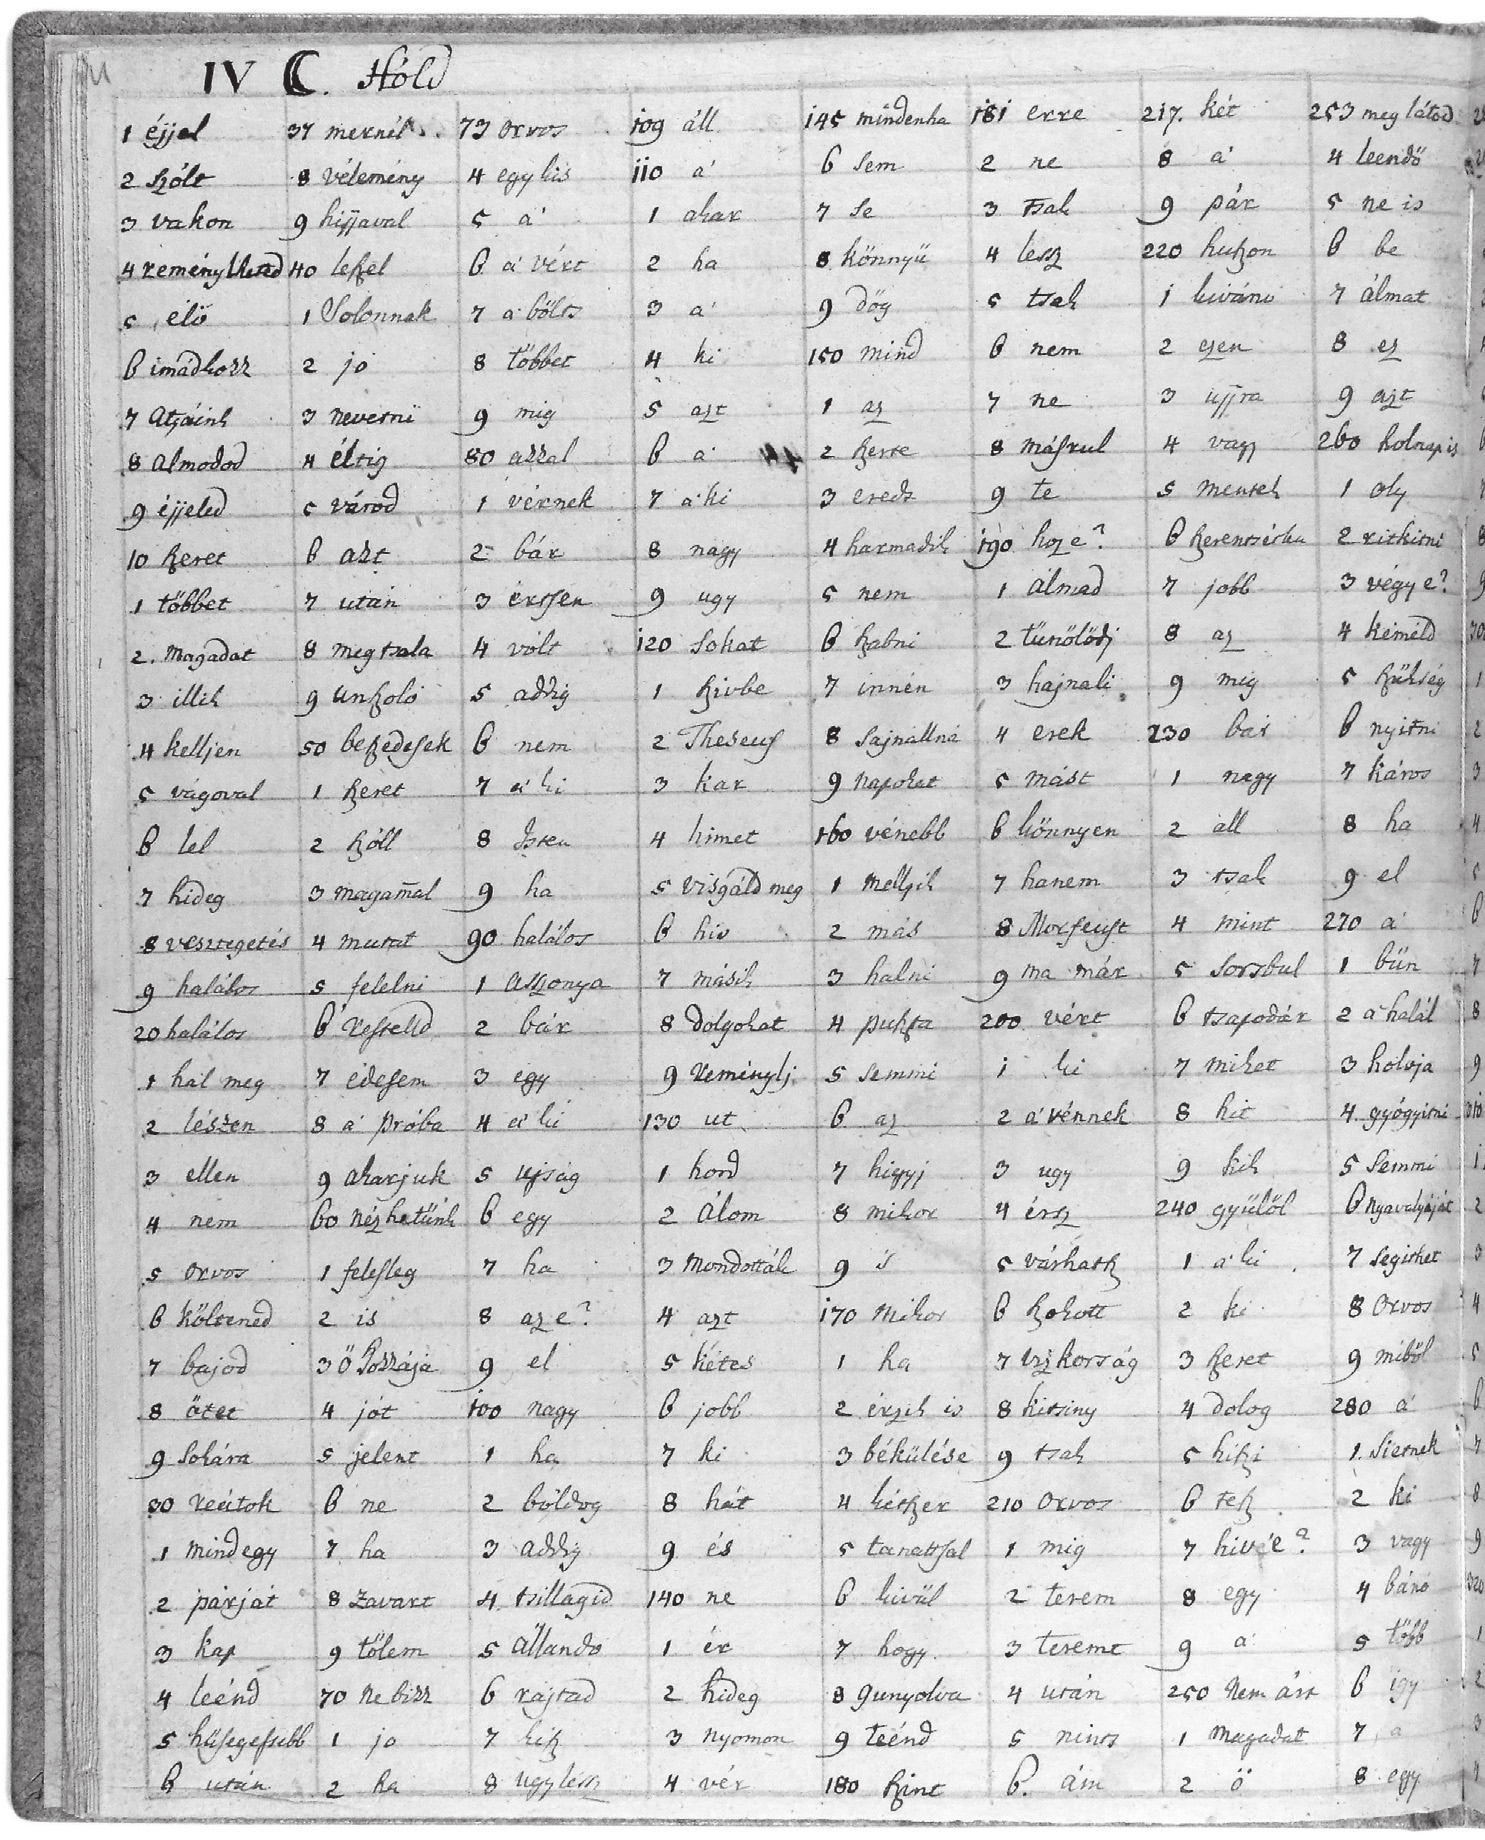 IV ☾. Hóld
1 éjjel 37 mernél. 73 orvos 109 áll 145 mindenha 181 erre 217. két 253 meg látod
2 szólt 8 vélemény 4 egy kis 110 a' 6 sem 2 ne 8 a' 4 leendő
3 vakon 9 hijjaval 5 a' 1 akar 7 se 3 tsak 9 pár 5 ne is
4 40 leszel 6 a' vért 2 ha 8 könnyü 4 lessz 220 huszon 6 be
5 élő 1 Solonnak 7 a' bölts 3 a' 9 dög 5 tsak 1 kiváni 7 álmat
6 imádkozz 2 jo 8 többet 4 ki 150 mind 6 nem 2 ezen 8 ez
7 Atyáink 3 nevetni 9 mig 5 azt 1 az 7 ne 3 ujjra 9 azt
8 álmodod 4 éltig 80 azzal 6 a' 2 szerte 8 másrul 4 vagy 260 holnap is
9 éjjeled 5 várod 1 vérnek 7 a' ki 3 eredt 9 te 5 mentek 1 oly
10 szeret 6 azt 2 bár 8 nagy 4 harmadik 190 hoz e? 6 szerentséska 2 ritkitni
1 többet 7 után 3 érssen 9 ugy 5 nem 1 álmad 7 jobb 3 végy e?
2. magadat 8 meg tsala 4 vólt 120 sokat 6 szabni 2 tünölődj 8 az 4 kéméld
3 illik 9 unszoló 5 addig 1 szivbe 7 innén 3 hajnali 9 mig 5 szükség
4 kelljen 50 beszedesek 6 nem 2 Theseus 8 sajnállná 4 erek 230 bár 6 nyitni
5 vágoval 1 szeret 7 a' ki 3 kar 9 napokat 5 mást 1 nagy 7 káros
6 lel 2 szóll 8 Isten 4 himet 160 vénebb 6 könnyen 2 áll 8 ha
7 hideg 3 magam̄al 9 ha 5 visgáld meg 1 mellyik 7 hanem 3 tsak 9 el
8 vesztegetés 4 mutat 90 halálos 6 hiv 2 más 8 Morfeust 4 mint 270 a'
9 halálos 5 felelni 1 asszonya 7 másik 3 halni 9 ma már 5 sorsbul 1 bün
20 halálos 6 restelld 2 bár 8 dolgokat 4 puszta 200 vért 6 tsapodár 2 a' halál
1 hal meg 7 édesem 3 egy 9 reménylj 5 semmi 1 ki 7 miket 3 holvja
2 lészen 8 a' próba 4 a' ki 130 ut 6 az 2 a' vénnek 8 hit 4 gyógyitni
3 ellen 9 akarjuk 5 ujság 1 hord 7 higyj 3 ugy 9 kik 5 semmi
4 nem 60 nézhetünk 6 egy 2 álom 8 mikor 4 érsz 240 gyülöl 6 nyavalyáját
5 orvos 1 felesleg 7 ha 3 mondották 9 's 5 várhatsz 1 a' ki 7 segithet
6 költened 2 is 8 az e? 4 azt 170 mikor 6 szokott 2 ki 8 orvos
7 bajod 3 ő 9 el 5 kétes 1 ha 7 3 szeret 9 miből
8 ötet 4 jót 100 nagy 6 jobb 2 érzik is 8 kitsiny 4 dolog 280 a'
9 sokára 5 jelent 1 ha 7 ki 3 békülése 9 tsak 5 hiszi 1. sietnek
30 reátok 6 ne 2 bóldog 8 hát 4 kétszer 210 orvos 6 tesz 2 ki
1 mind egy 7 ha 3 addig 9 és 5 tanattsal 1 mig 7 hiv é? 3 vagy
2 párját 8 zavart 4 tsillagid 140 ne 6 kivül 2 terem 8 egy 4 bánó
3 kap 9 tőlem 5 állando 1 ér 7 hogy 3 teremt 9 a' 5 több
4 leénd 70 ne bizz 6 rajtad 2 hideg 8 gunyolva 4 után 250 nem árt 6 igy
5 hüségessebb 1 jo 7 kisz 3 nyomon 9 teénd 5 nints 1 magadat 7 a
6 után 2 ha 8 ugy léssz 4 vér 180 szint 6. ám 2 ö 8 egy